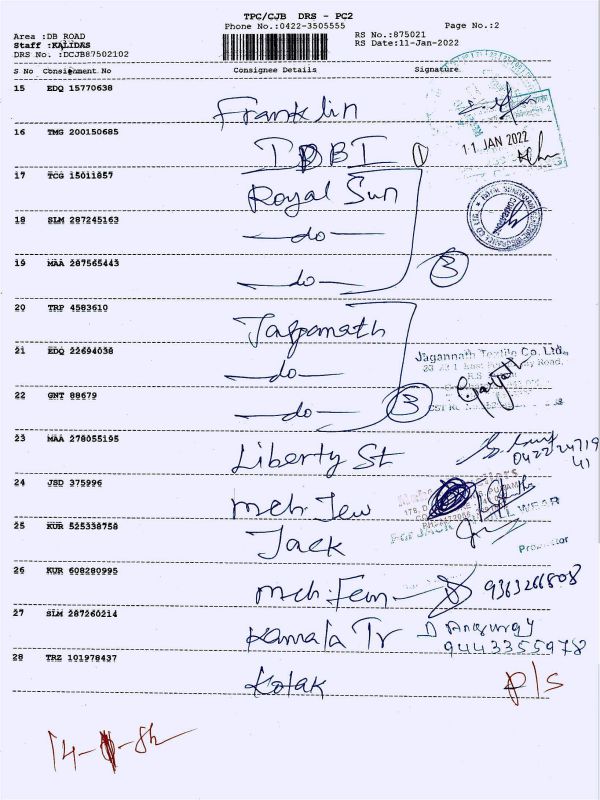 TPC/CJB DRS - PC2
Phone No.:0422-3505555 Page No.:2
Area :DB ROAD RS No.:875021
Staff :KALIDAS RS Date:11-Jan-2022
DRS No. :DCJB87502102
S No Consignment No Consignee Details Signature
15 EDQ 15770638 Franklin
16 TMG 200150685 IDBI 1
11 JAN 2022
17 TCG 15011857 Royal Sun
18 SLM 287245163 do
19 MAA 287565443 do 3
20 TRP 4583610 Jagannath
21 EDQ 22694038 do
Jagannath Textile Co. Ltd.,
22 GNT 88679 do 3
23 MAA 278055195 Liberty St
04222 24719
41
24 JSD 375996 mch Jew
25 KUR 525338758 Jack
Proprietor
26 KUR 608280995 mch Fem 9363266808
27 SLM 287260214 Kamala Tr
9443355978
28 TRZ 101978437 Kotak P/S